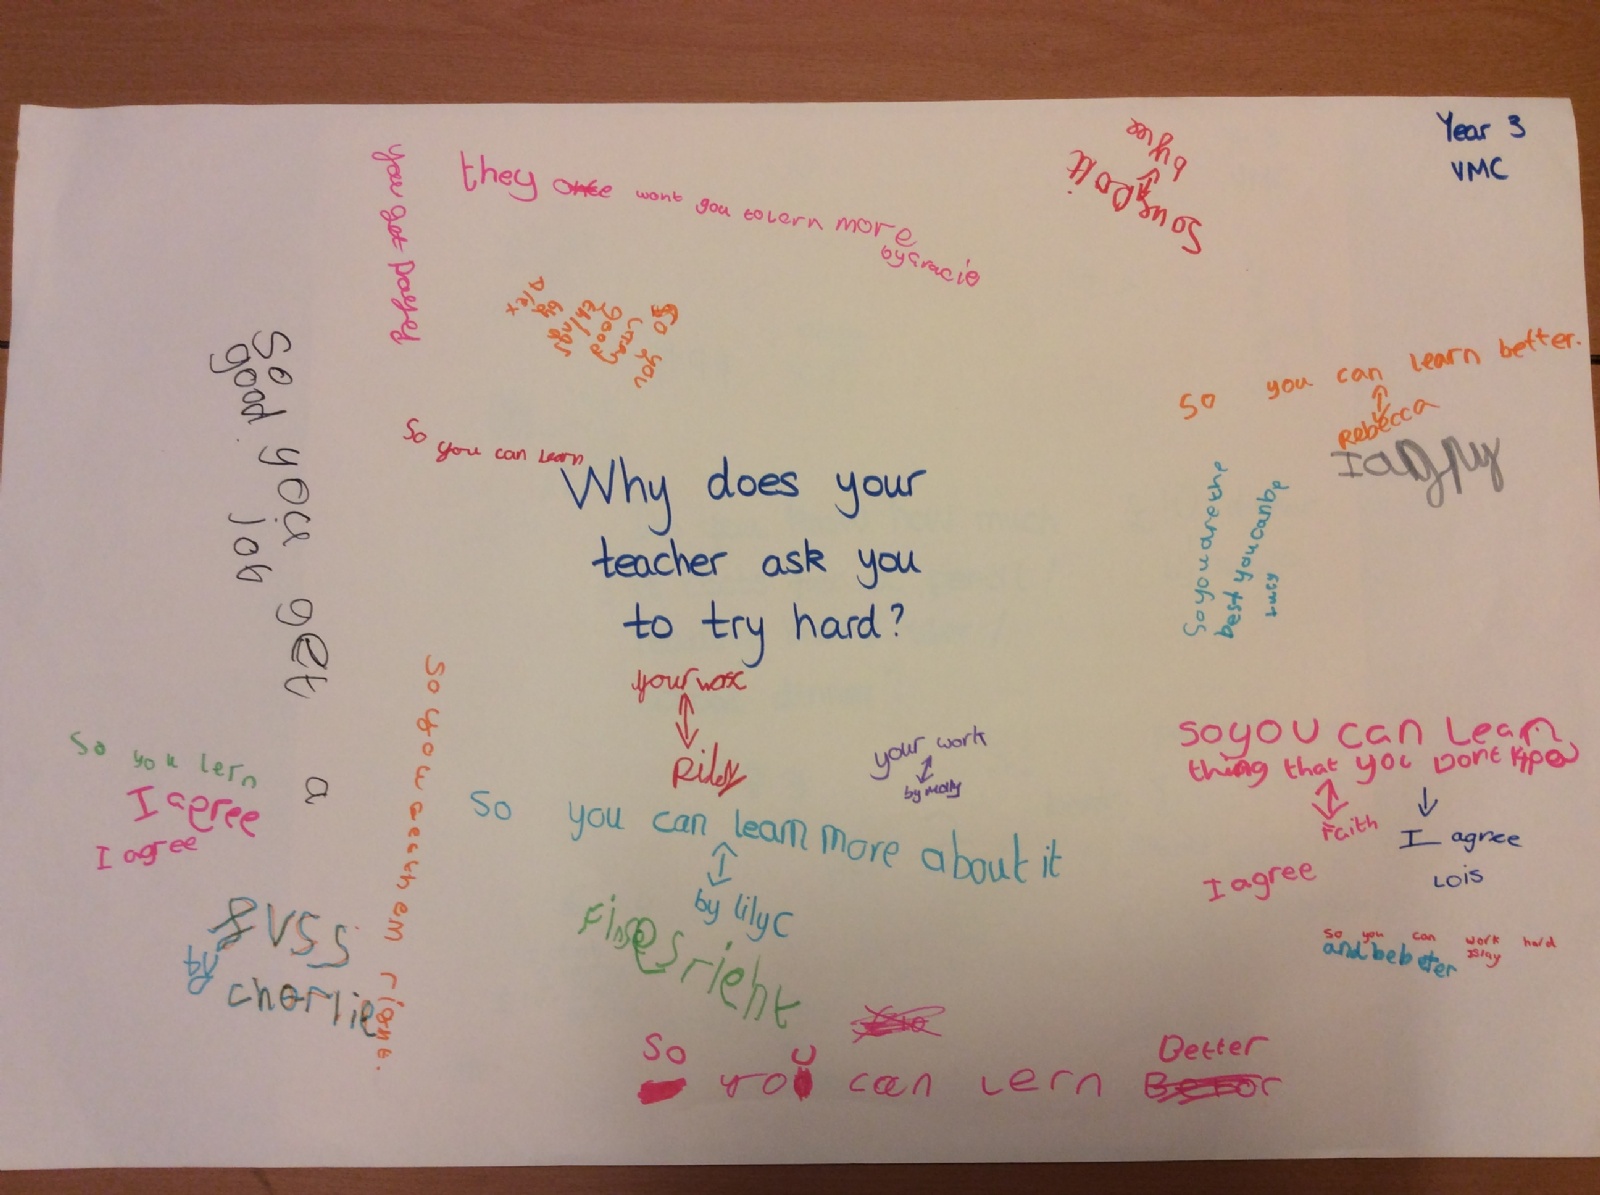 Year 3
VMC
they want you to lern more
by Gracie
So we Do it
by
you get
So you
good
things
by
Alex
So you can learn better.
Rebecca
So you can learn
Why does your
teacher ask you
to try hard?
So you get a
good job
So you are the
best you can be
your
Riley
your work
by Molly
So you can learn more about it
by lily C
So you can Learn
thing that you Dont
Faith
I agree
Lois
I agree
So you can work hard
Islay
and be beter
So you lern
I agree
I agree
So you
charlie
So you can lern Better